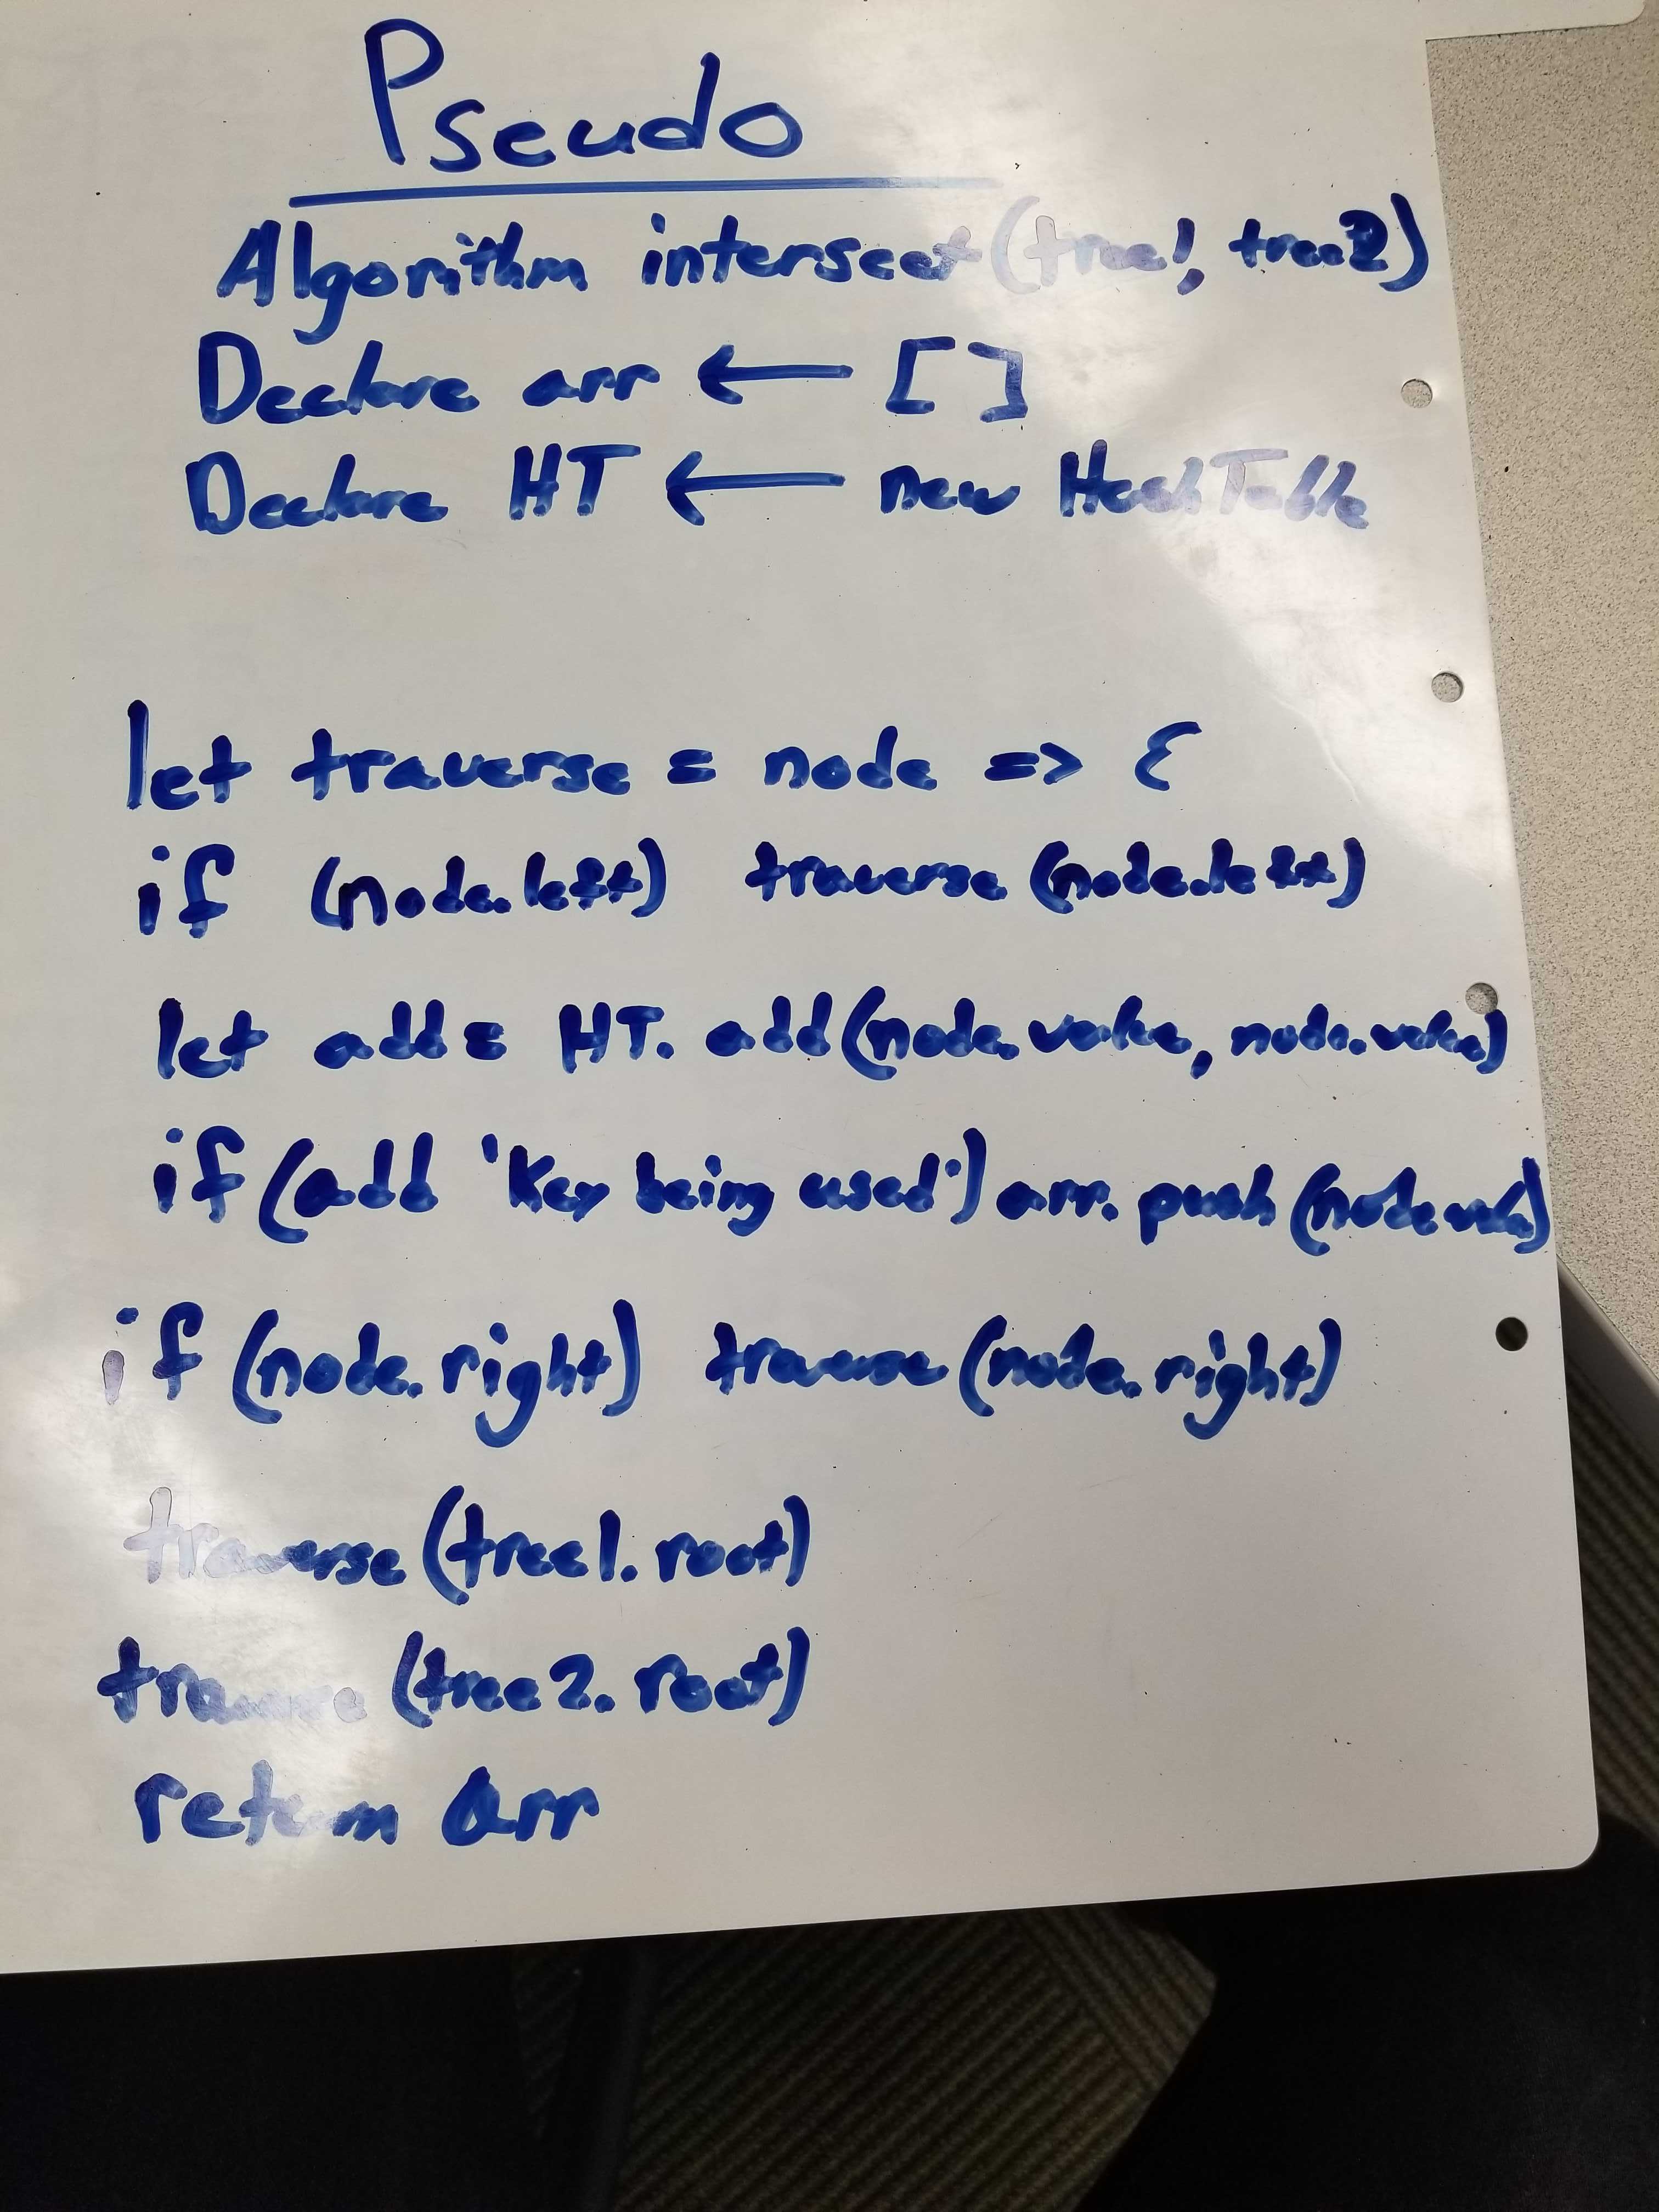 Pseudo
Algorithm intersect (tree1, tree2)
Declare arr ← []
Declare HT ← new HashTable
let traverse = node => {
if (node.left) traverse (node.left)
let add = HT. add(node.value, node.value)
if (add 'Key being used') arr. push (node.val)
if (node.right) traverse (node.right)
traverse (tree1.root)
traverse (tree2.root)
return arr